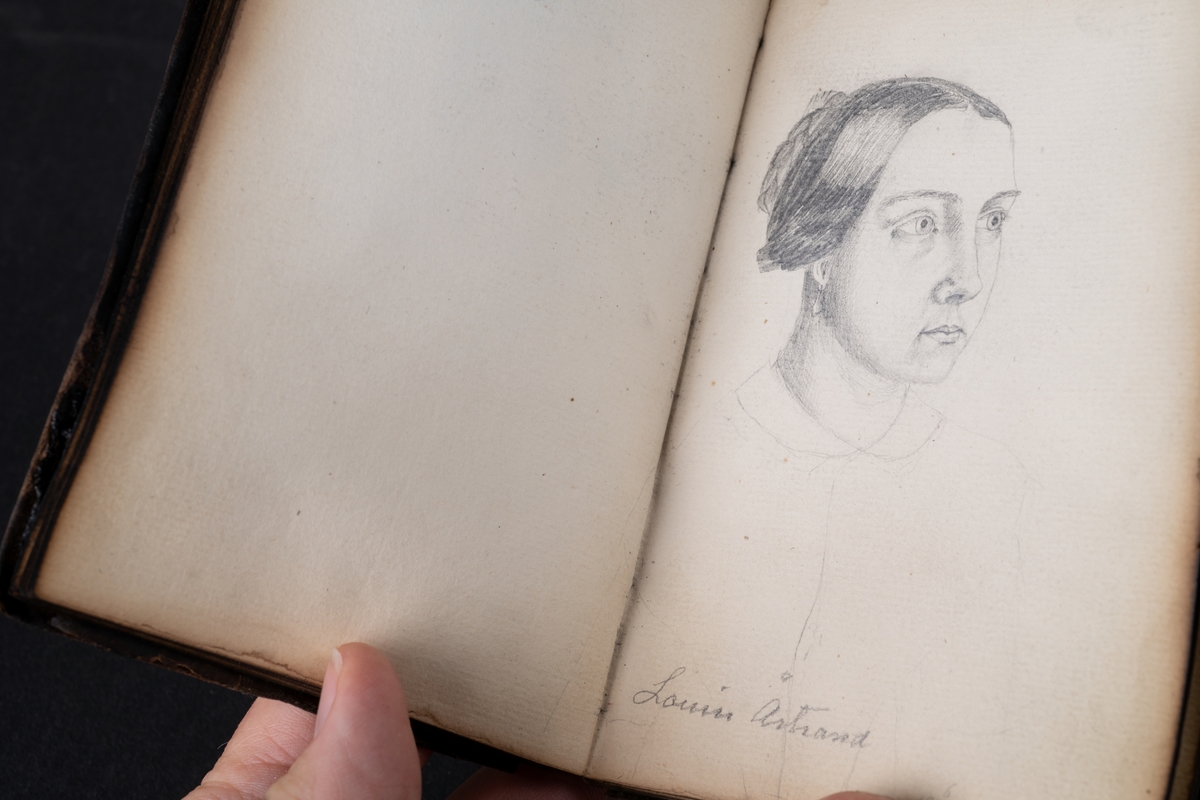 Louise Åstrand